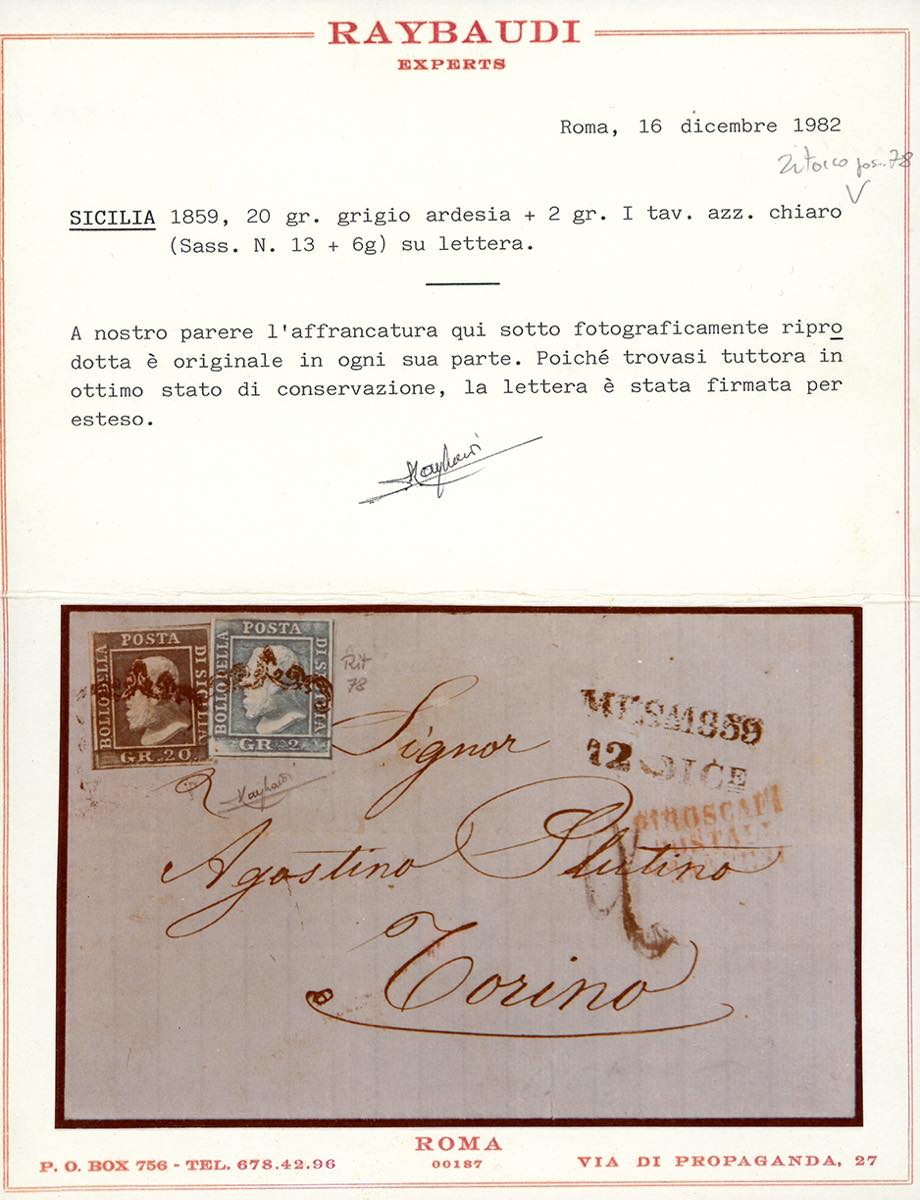 RAYBAUDI
EXPERTS
Roma, 16 dicembre 1982
pos. 78
SICILIA 1859, 20 gr. grigio ardesia + 2 gr. I tav. azz. chiaro
(Sass. N. 13 + 6g) su lettera.
A nostro parere l'affrancatura qui sotto fotograficamente ripro
dotta è originale in ogni sua parte. Poiché trovasi tuttora in
ottimo stato di conservazione, la lettera è stata firmata per
esteso.
BOLLO DELLA POSTA DI SICILIA
GR. 20
BOLLO DELLA POSTA DI SICILIA
GR. 2
Rit
78
MESSA 1859
12 DICE
PIROSCAFI
POSTALI
Signor
Agostino Plutino
Torino
ROMA
00187
P. O. BOX 756 - TEL. 678.42.96
VIA DI PROPAGANDA, 27